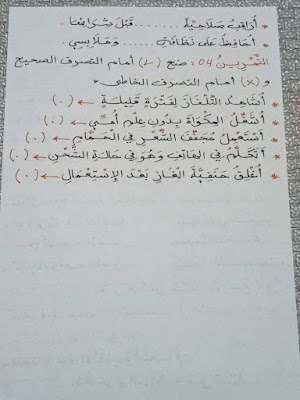 * أُرَاقِبُ صَلَاحِيَّةَ ........ قَبْلَ شِرَائِهَا.
* أُحَافِظُ عَلَى نَظَافَةِ ....... وَمَلَابِسِي
التَّمْرِينُ 04: ضع (√) أمام التصرف الصحيح
و (x) أمام التصرف الخاطئ.
* أُشَاهِدُ التِّلْفَازَ لِفَتْرَةٍ قَلِيلَةٍ ← (.)
* أُشَغِّلُ المِكْوَاةَ بِدُونِ عِلْمِ أُمِّي ← (.)
* أَسْتَعْمِلُ مُجَفِّفَ الشَّعْرِ فِي الحَمَّامِ ← (.)
* أَتَكَلَّمُ فِي الهَاتِفِ وَهُوَ فِي حَالَةِ الشَّحْنِ ← (.)
* أُغْلِقُ حَنَفِيَّةَ الغَازِ بَعْدَ الإِسْتِعْمَالِ ← (.)